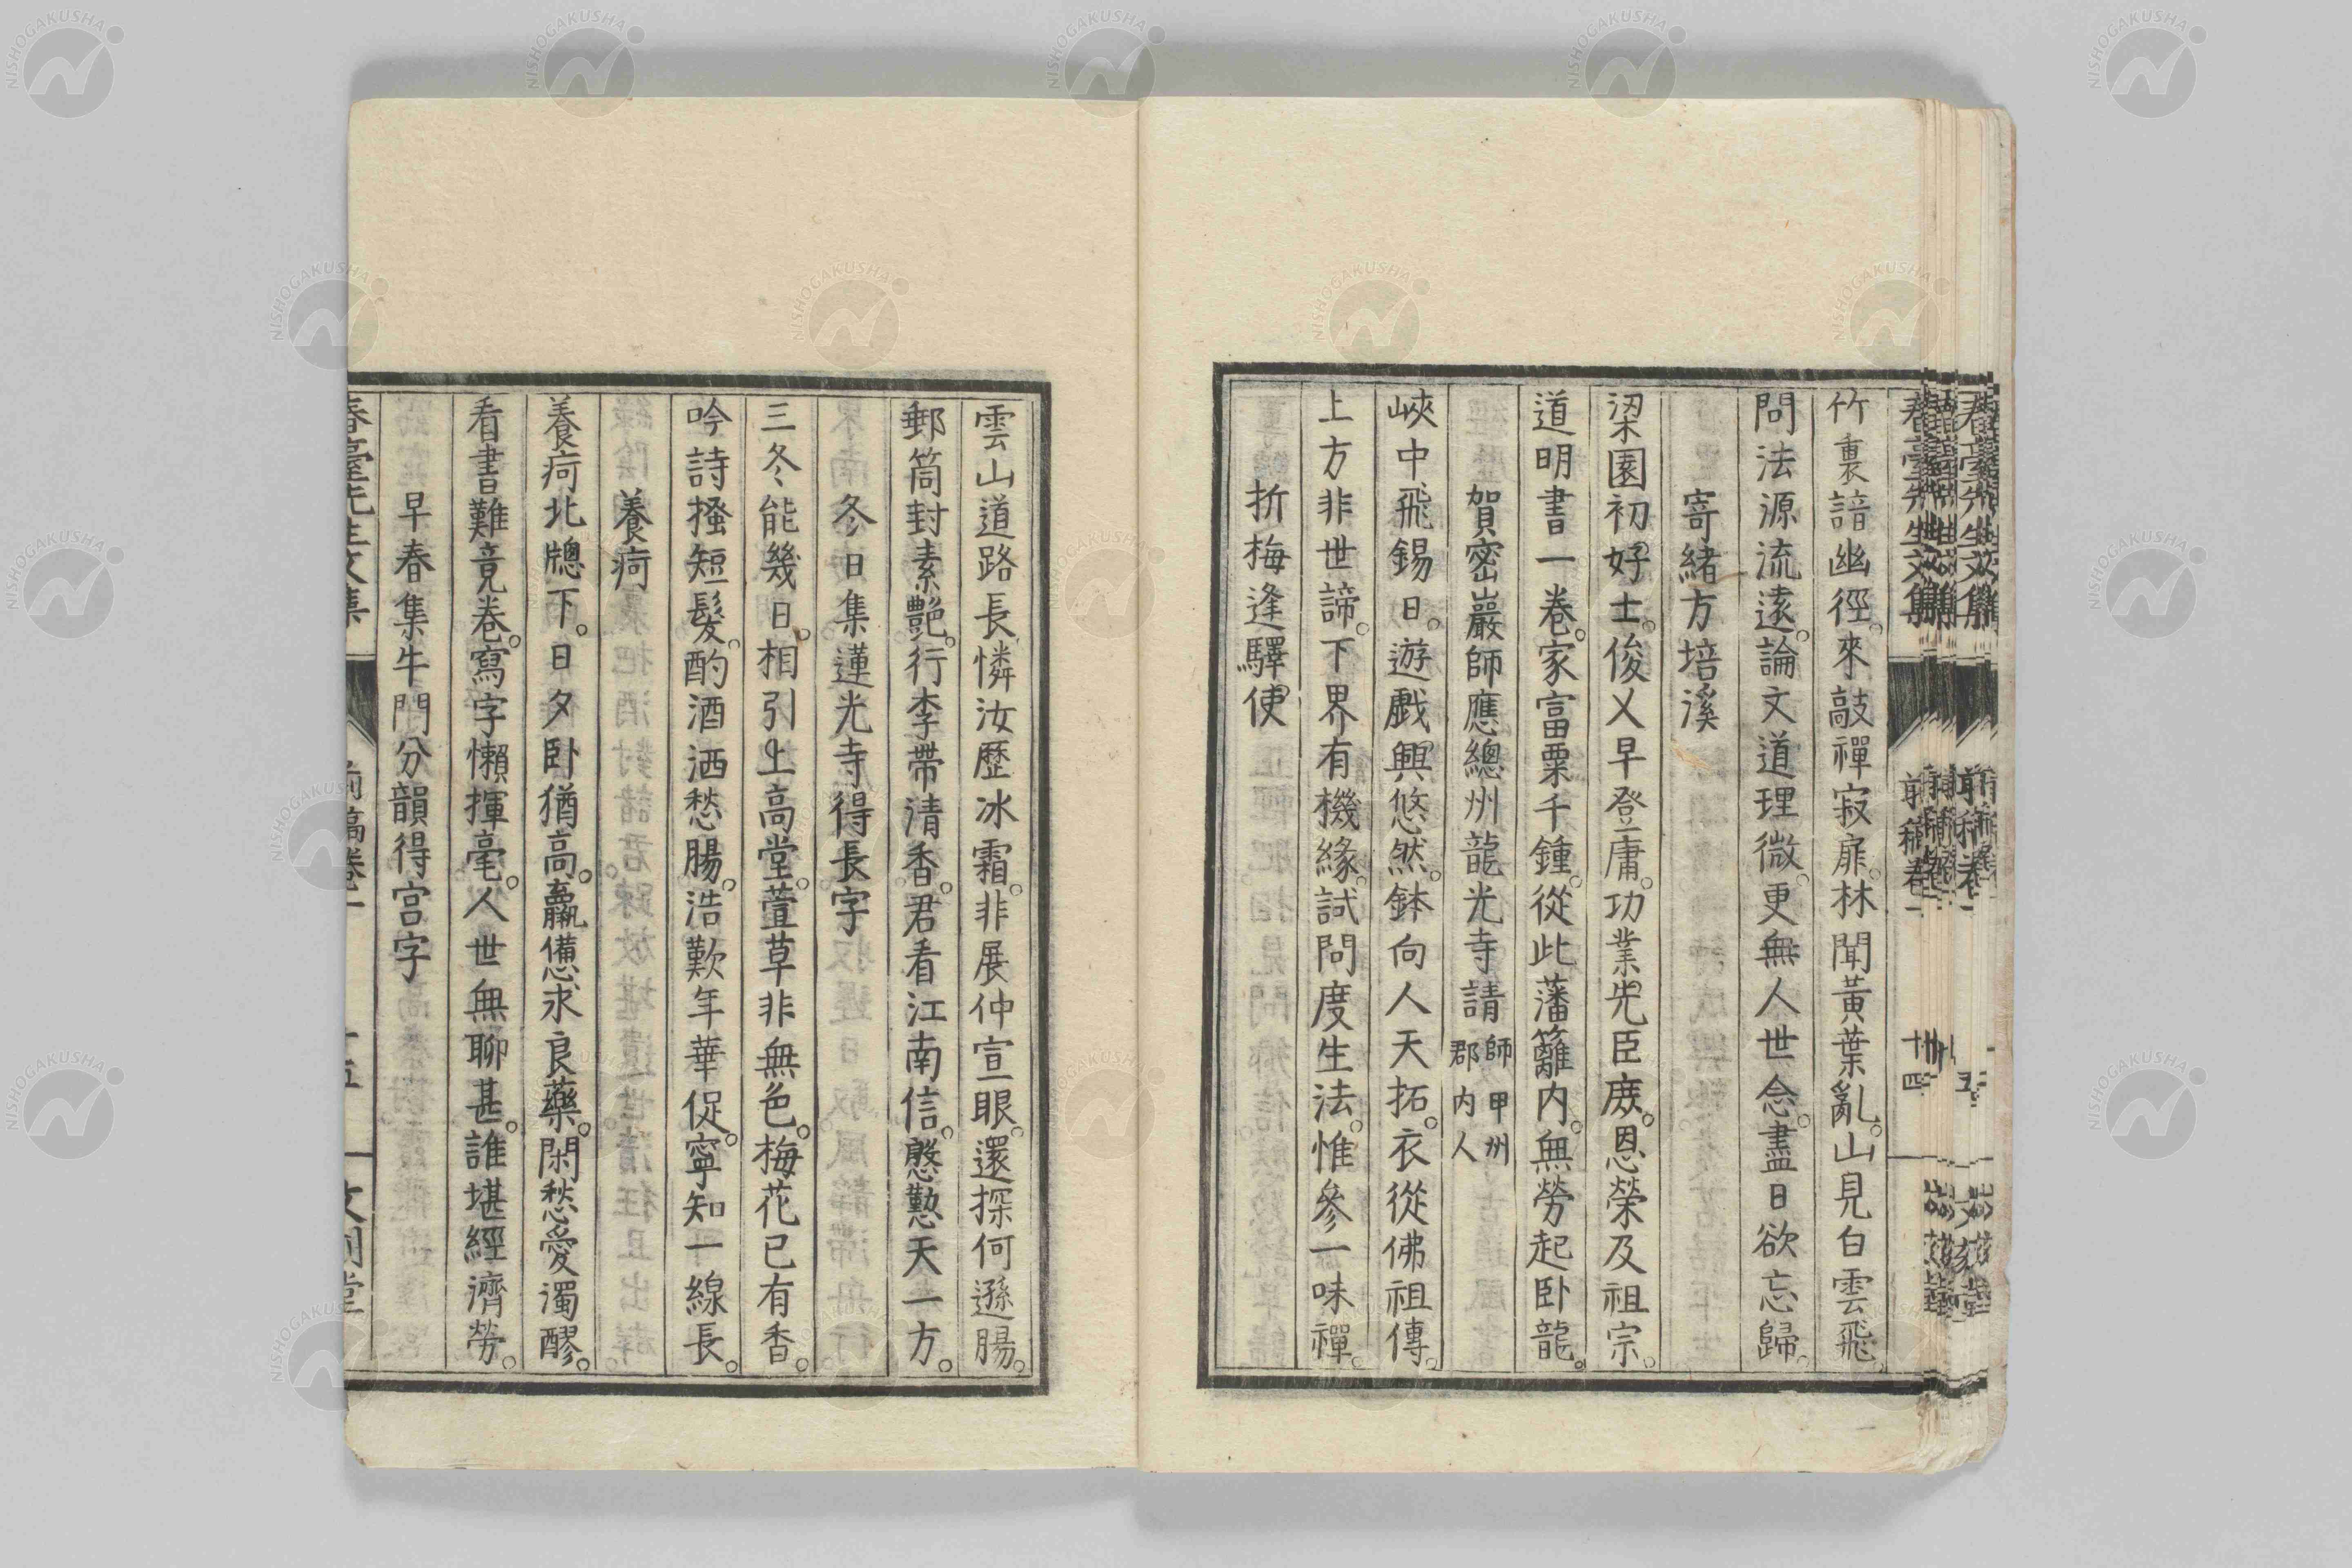 竹裏諳幽徑。來敲禪寂扉。林聞黃葉亂。山見白雲飛。
問法源流遠。論文道理微。更無人世念。盡日欲忘歸。
寄緒方培溪
梁園初好士。俊乂早登庸。功業先臣廣。恩榮及祖宗。
道明書一卷。家富粟千鍾。從此藩籬內。無勞起卧龍。
賀密巖師應總州龍光寺請 師甲州郡内人
峽中飛錫日。遊戲興悠然。鉢向人天拓。衣從佛祖傳。
上方非世諦。下界有機緣。試問度生法。惟參一味禪。
折梅逢驛使
雲山道路長。憐汝歷冰霜。非展仲宣眼。還探何遜腸。
郵筒封素艷。行李帶清香。君看江南信。慇懃天一方。
冬日集蓮光寺得長字
三冬能幾日。相引上高堂。萱草非無色。梅花已有香。
吟詩搔短髮。酌酒洒愁腸。浩歎年華促。寧知一線長。
養疴
養疴北牕下。日夕卧猶高。羸憊求良藥。閑愁愛濁醪。
看書難竟卷。寫字懶揮毫。人世無聊甚。誰堪經濟勞。
早春集牛門分韻得宮字
春臺先生文集 前稿卷二 十五